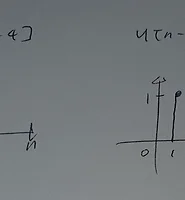 -4]
u[n-
1
n
0 1